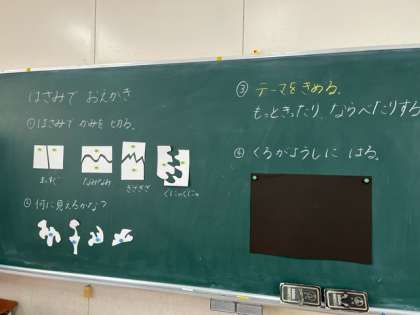 はさみで おえかき
①はさみで かみを 切る。
まっすぐ
なみなみ
ぎざぎざ
ぐにゃぐにゃ
②何に見えるかな?
③ テーマをきめる。
もっときったり、ならべたりする
④ くろがようしに はる。